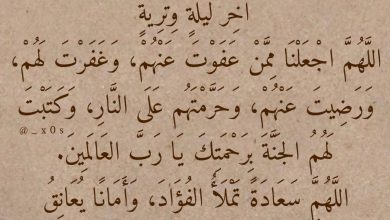 آخِر لَيلَةٍ وِترِيةٍ
اللَّهُمَّ اجْعَلْنَا مِمَّنْ عَفَوْتَ عَنْهُمْ، وَغَفَرْتَ لَهُمْ،
وَرَضِيتَ عَنْهُمْ، وَحَرَّمْتَهُم عَلَى النَّارِ، وَكَتَبْتَ
@_x0s
لَهُمُ الجَنَّةَ بِرَحْمَتِكَ يَا رَبَّ العَالَمِينَ.
اللَّهُمَّ سَعَادَةً تَمْلَأُ الفُؤَادَ، وَأَمَانًا يُعَانِقُ